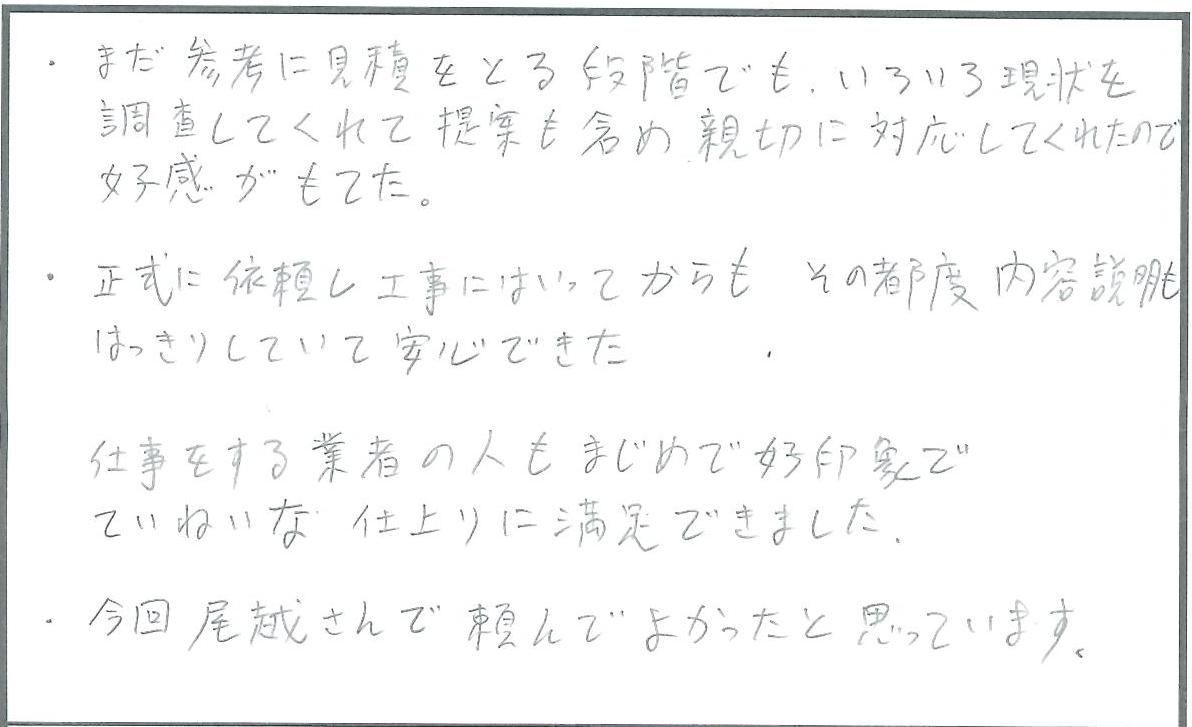 ・まだ参考に見積をとる段階でも、いろいろ現状を
調査してくれて提案も含め親切に対応してくれたので
好感がもてた。
・正式に依頼し工事にはいってからも その都度 内容説明も
はっきりしていて安心できた
仕事をする業者の人もまじめで好印象で
ていねいな仕上りに満足できました。
・今回尾越さんで頼んでよかったと思っています。